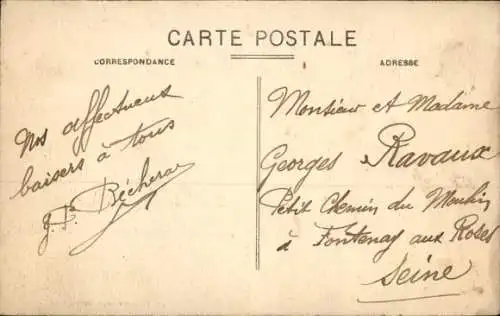 CARTE POSTALE
CORRESPONDANCE
ADRESSE
Nos affectueux
baisers à tous
Monsieur et Madame
Georges Ravaux
Petit Chemin du Moulin
à Fontenay aux Roses
Seine